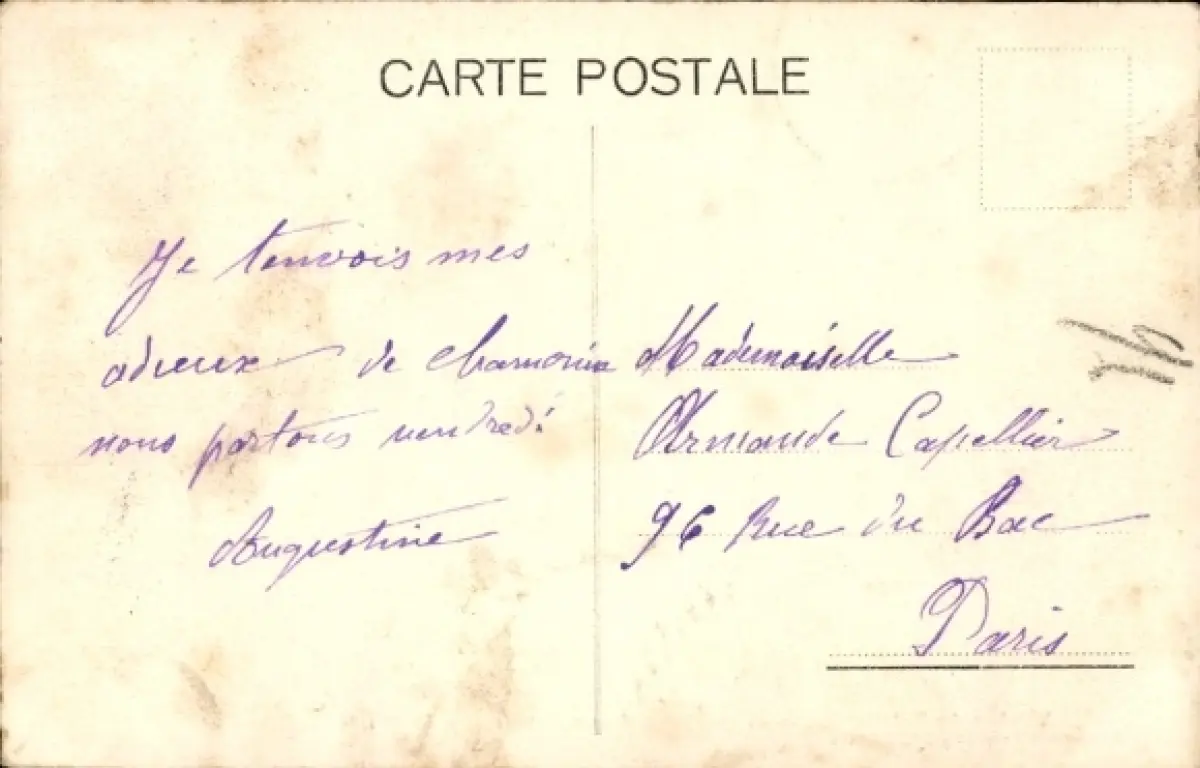 CARTE POSTALE
Je tenvois mes
adieux de chamonix
nous partons vendredi
Augustine
Mademoiselle
Armande Capellier
96 Rue du Bac
Paris